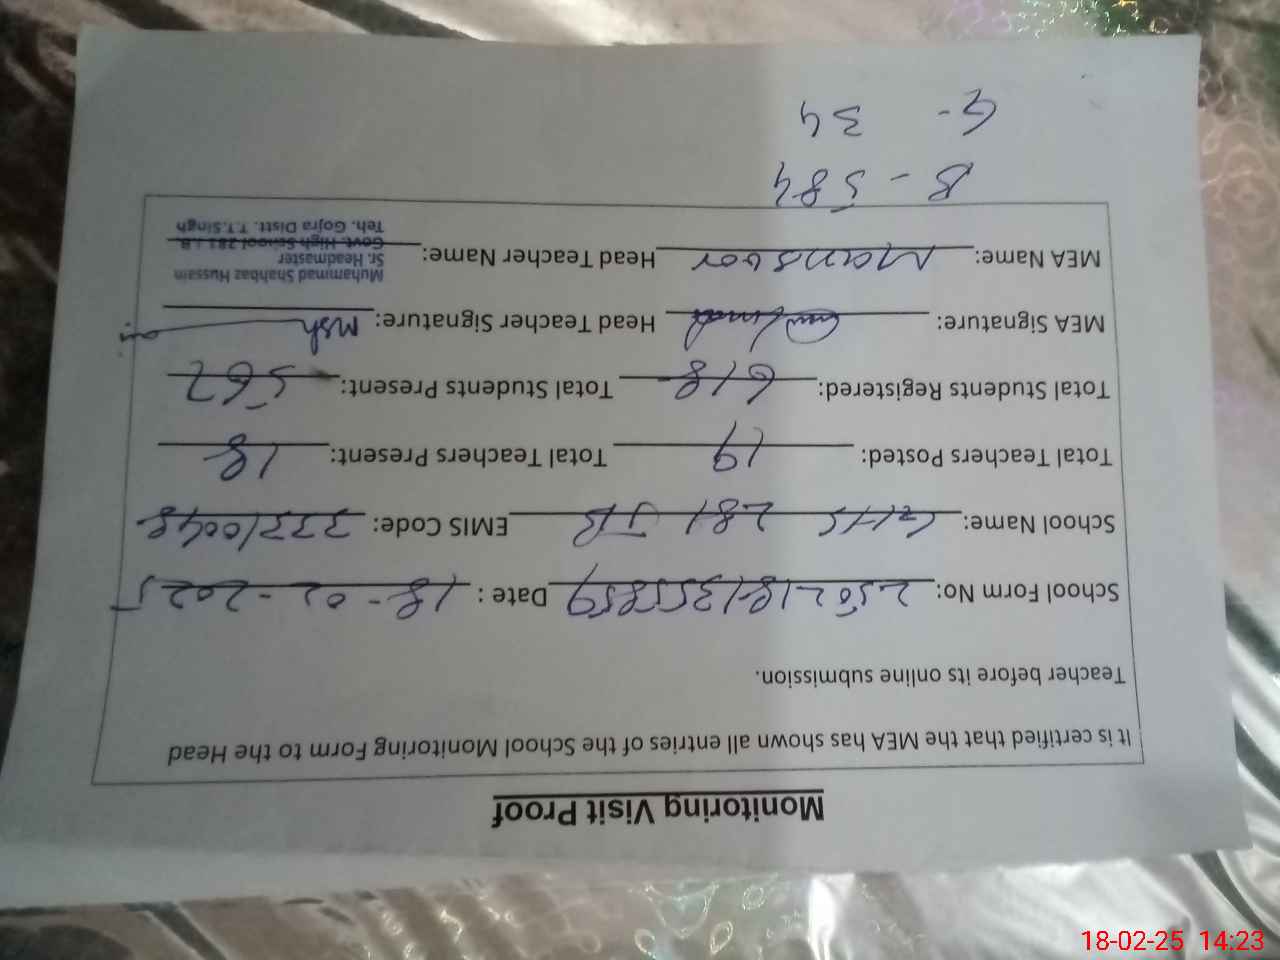 Monitoring Visit Proof
It is certified that the MEA has shown all entries of the School Monitoring Form to the Head
Teacher before its online submission.
School Form No: 250218135585 9 Date : 18-02-2025
School Name: GHS 281 JB EMIS Code: 33310048
Total Teachers Posted: 19 Total Teachers Present: 18
Total Students Registered: 618 Total Students Present: 567
MEA Signature: Head Teacher Signature:
MEA Name: Mansoor Head Teacher Name:
Muhammad Shahbaz Hussain
Sr. Headmaster
Govt. High School 281 J.B.
Teh. Gojra Distt. T.T.Singh
B - 584
G - 34
18-02-25 14:23